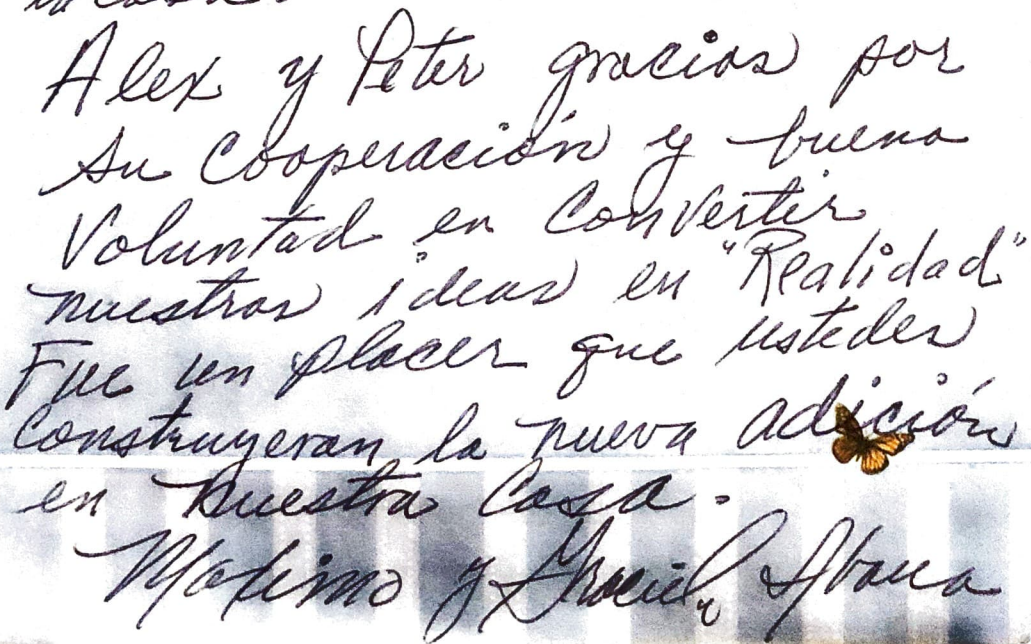 Alex y Peter gracias por
su Cooperación y buena
Voluntad en Convertir
nuestras ideas en "Realidad"
Fue un placer que ustedes
Construyeran la nueva adición
en nuestra Casa.
Maximo y Graciela